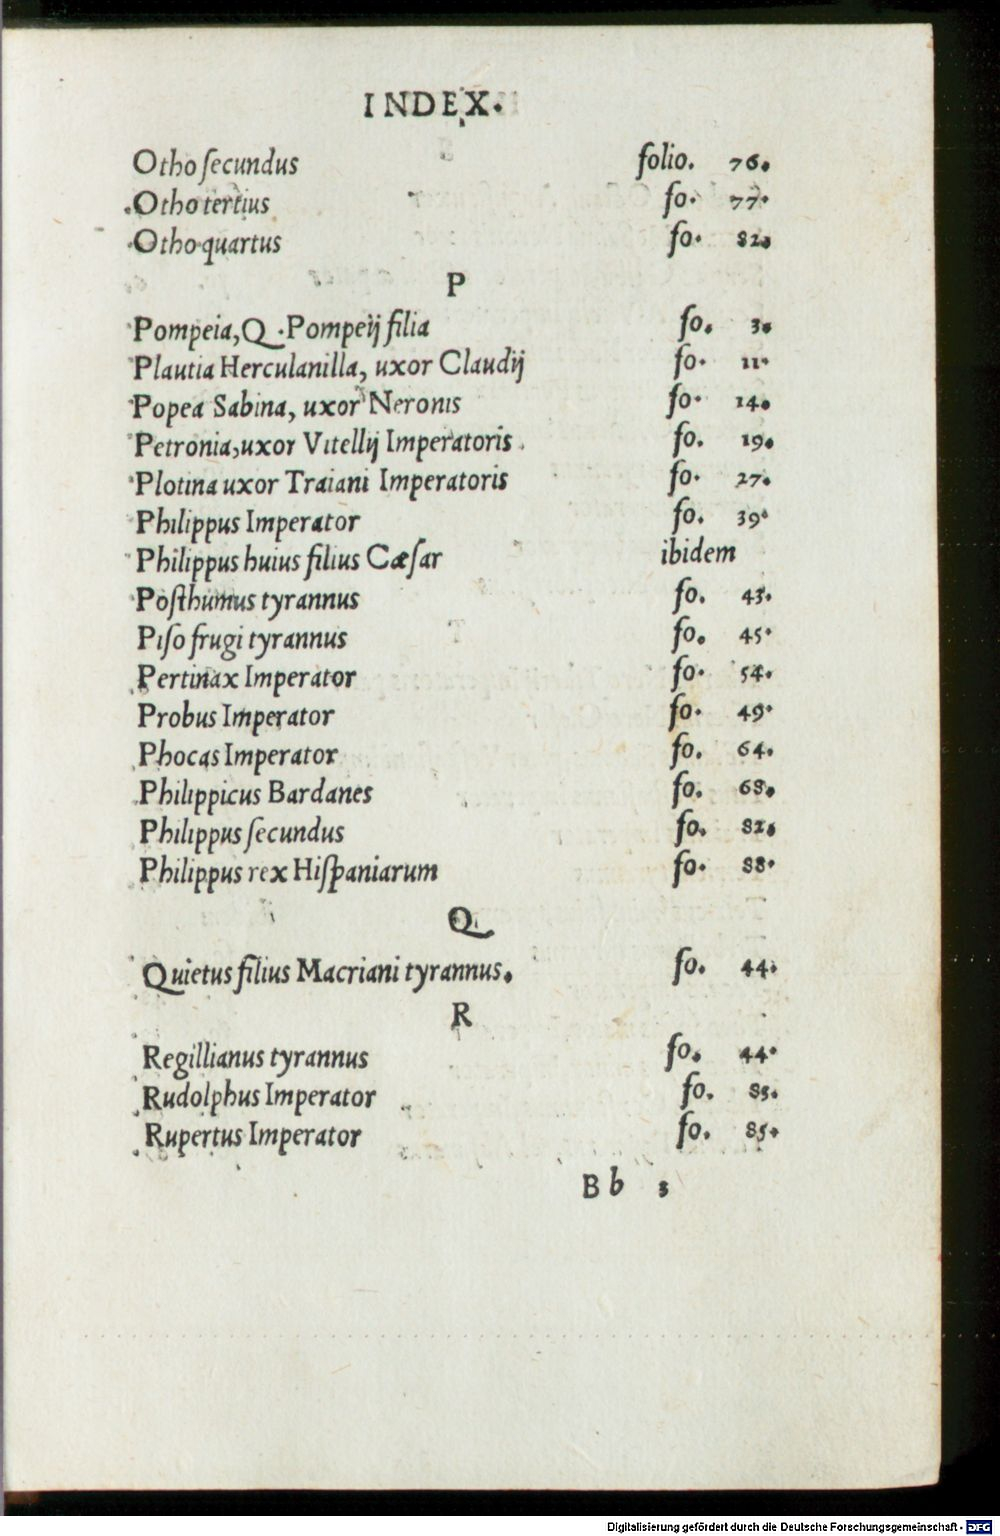 INDEX.
Otho ſecundus folio. 76.
Otho tertius fo. 77.
Otho quartus fo. 82.
P
Pompeia, Q. Pompeij filia fo. 3.
Plautia Herculanilla, uxor Claudij fo. 11.
Popea Sabina, uxor Neronis fo. 14.
Petronia, uxor Vitellij Imperatoris fo. 19.
Plotina uxor Traiani Imperatoris fo. 27.
Philippus Imperator fo. 39.
Philippus huius filius Cæſar ibidem
Poſthumus tyrannus fo. 43.
Piſo frugi tyrannus fo. 45.
Pertinax Imperator fo. 54.
Probus Imperator fo. 49.
Phocas Imperator fo. 64.
Philippicus Bardanes fo. 68.
Philippus ſecundus fo. 82.
Philippus rex Hiſpaniarum fo. 88.
Q
Quietus filius Macriani tyrannus. fo. 44.
R
Regillianus tyrannus fo. 44.
Rudolphus Imperator fo. 85.
Rupertus Imperator fo. 85.
Bb 3
Digitalisierung gefördert durch die Deutsche Forschungsgemeinschaft - DFG